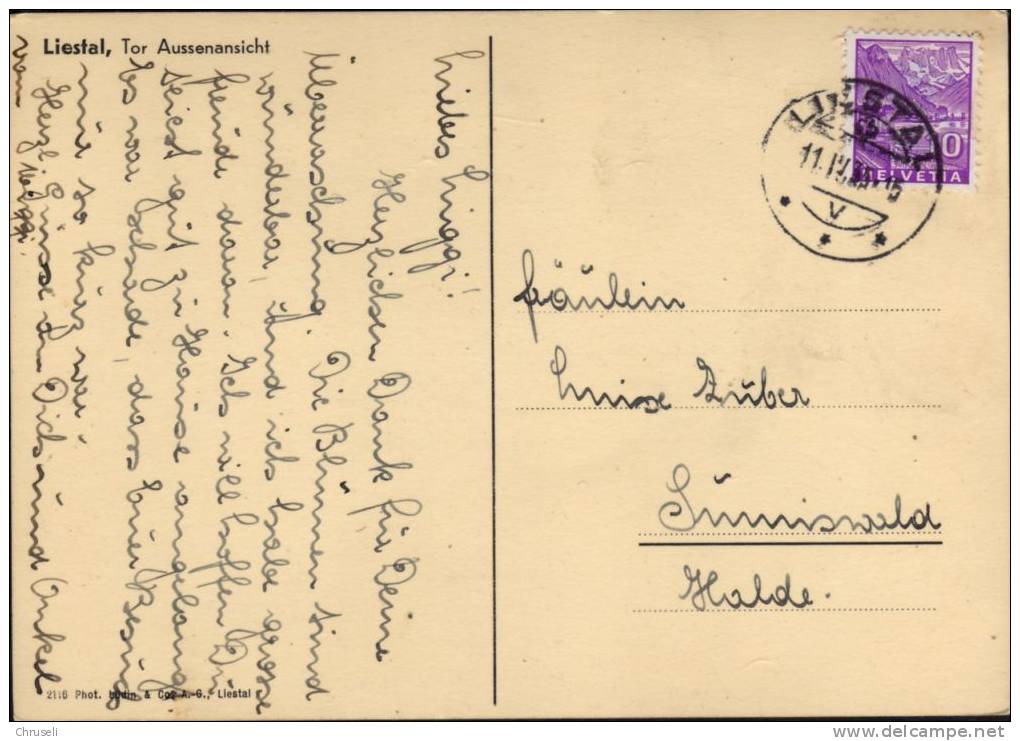 Liestal, Tor Aussenansicht
Liebes Luggi!!
Herzlichen Dank für Deine
Überraschung. Die Blumen sind
wunderbar, und ich habe grosse
Freude daran. Ich will hoffen Du
seiest gut zu Hause angelangt.
Es war schade, dass Euer Besuch
nur so kurz war.
Herzl. Grüsse an Dich und Onkel
vom
LIESTAL
11.IV.
15
V
10
HELVETIA
Fräulein
Luise Zuber
Sumiswald
Halde.
2116 Phot. Lüdin & Co. A.-G., Liestal
Chruseli
www.delcampe.net